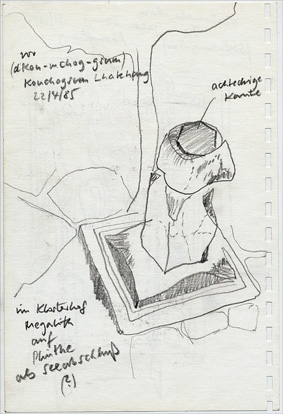 vor
(dKon-mchog-gsum)
Konchogsum Lhakhang
22/4/85
achteckige
Kante
im Klosterhof
Megalith
auf
Plinthe
als Seeabschluß
(?)